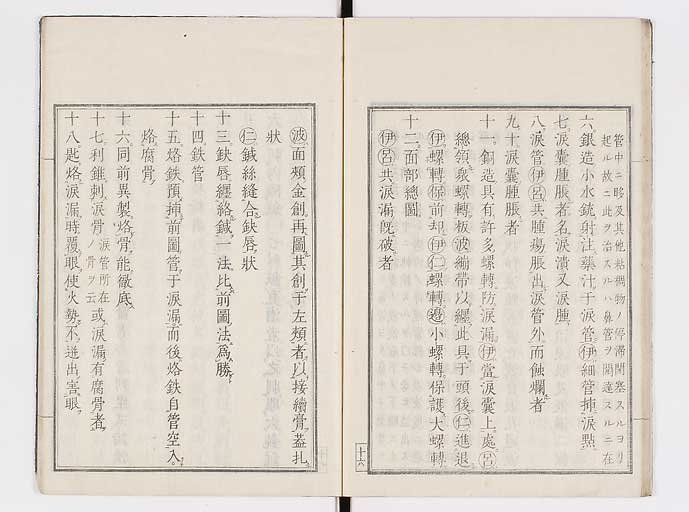 管中ニ眵及其他粘稠物ノ停滯閉塞スルヨリ
起ル故ニ此ヲ治スルハ鼻管ヲ開達スルニ在
六銀造小水銃射注藥汁于淚管㋑伊細管揷淚㸃
七淚囊腫脹者名淚潰又淚腫
八淚管伊呂共腫瘍脹出淚管外而蝕爛者
九十淚囊腫脹者
十一銅造具有許多螺轉防淚漏伊當淚囊上處呂
總領衆螺轉板波繃帶以纏此具于頭後仁進退
伊螺轉保前却伊仁螺轉邊小螺轉保護大螺轉
十二面部總圖
伊呂共淚漏旣破者
波面頰金創再圖其創于左頰者以接續膏葢扎
狀
仁鍼絲縫合缺唇狀
十三缺唇纏絡鍼一法比前圖法爲勝
十四鉄管
十五烙鉄預揷前圖管于淚漏而後烙鉄自管空入
烙腐骨
十六同前異製烙骨能徹底
十七利錐刺淚骨淚管所在ノ骨ヲ云或淚漏有腐骨者
十八匙烙淚漏時覆眼使火勢不迸出害眼
十六